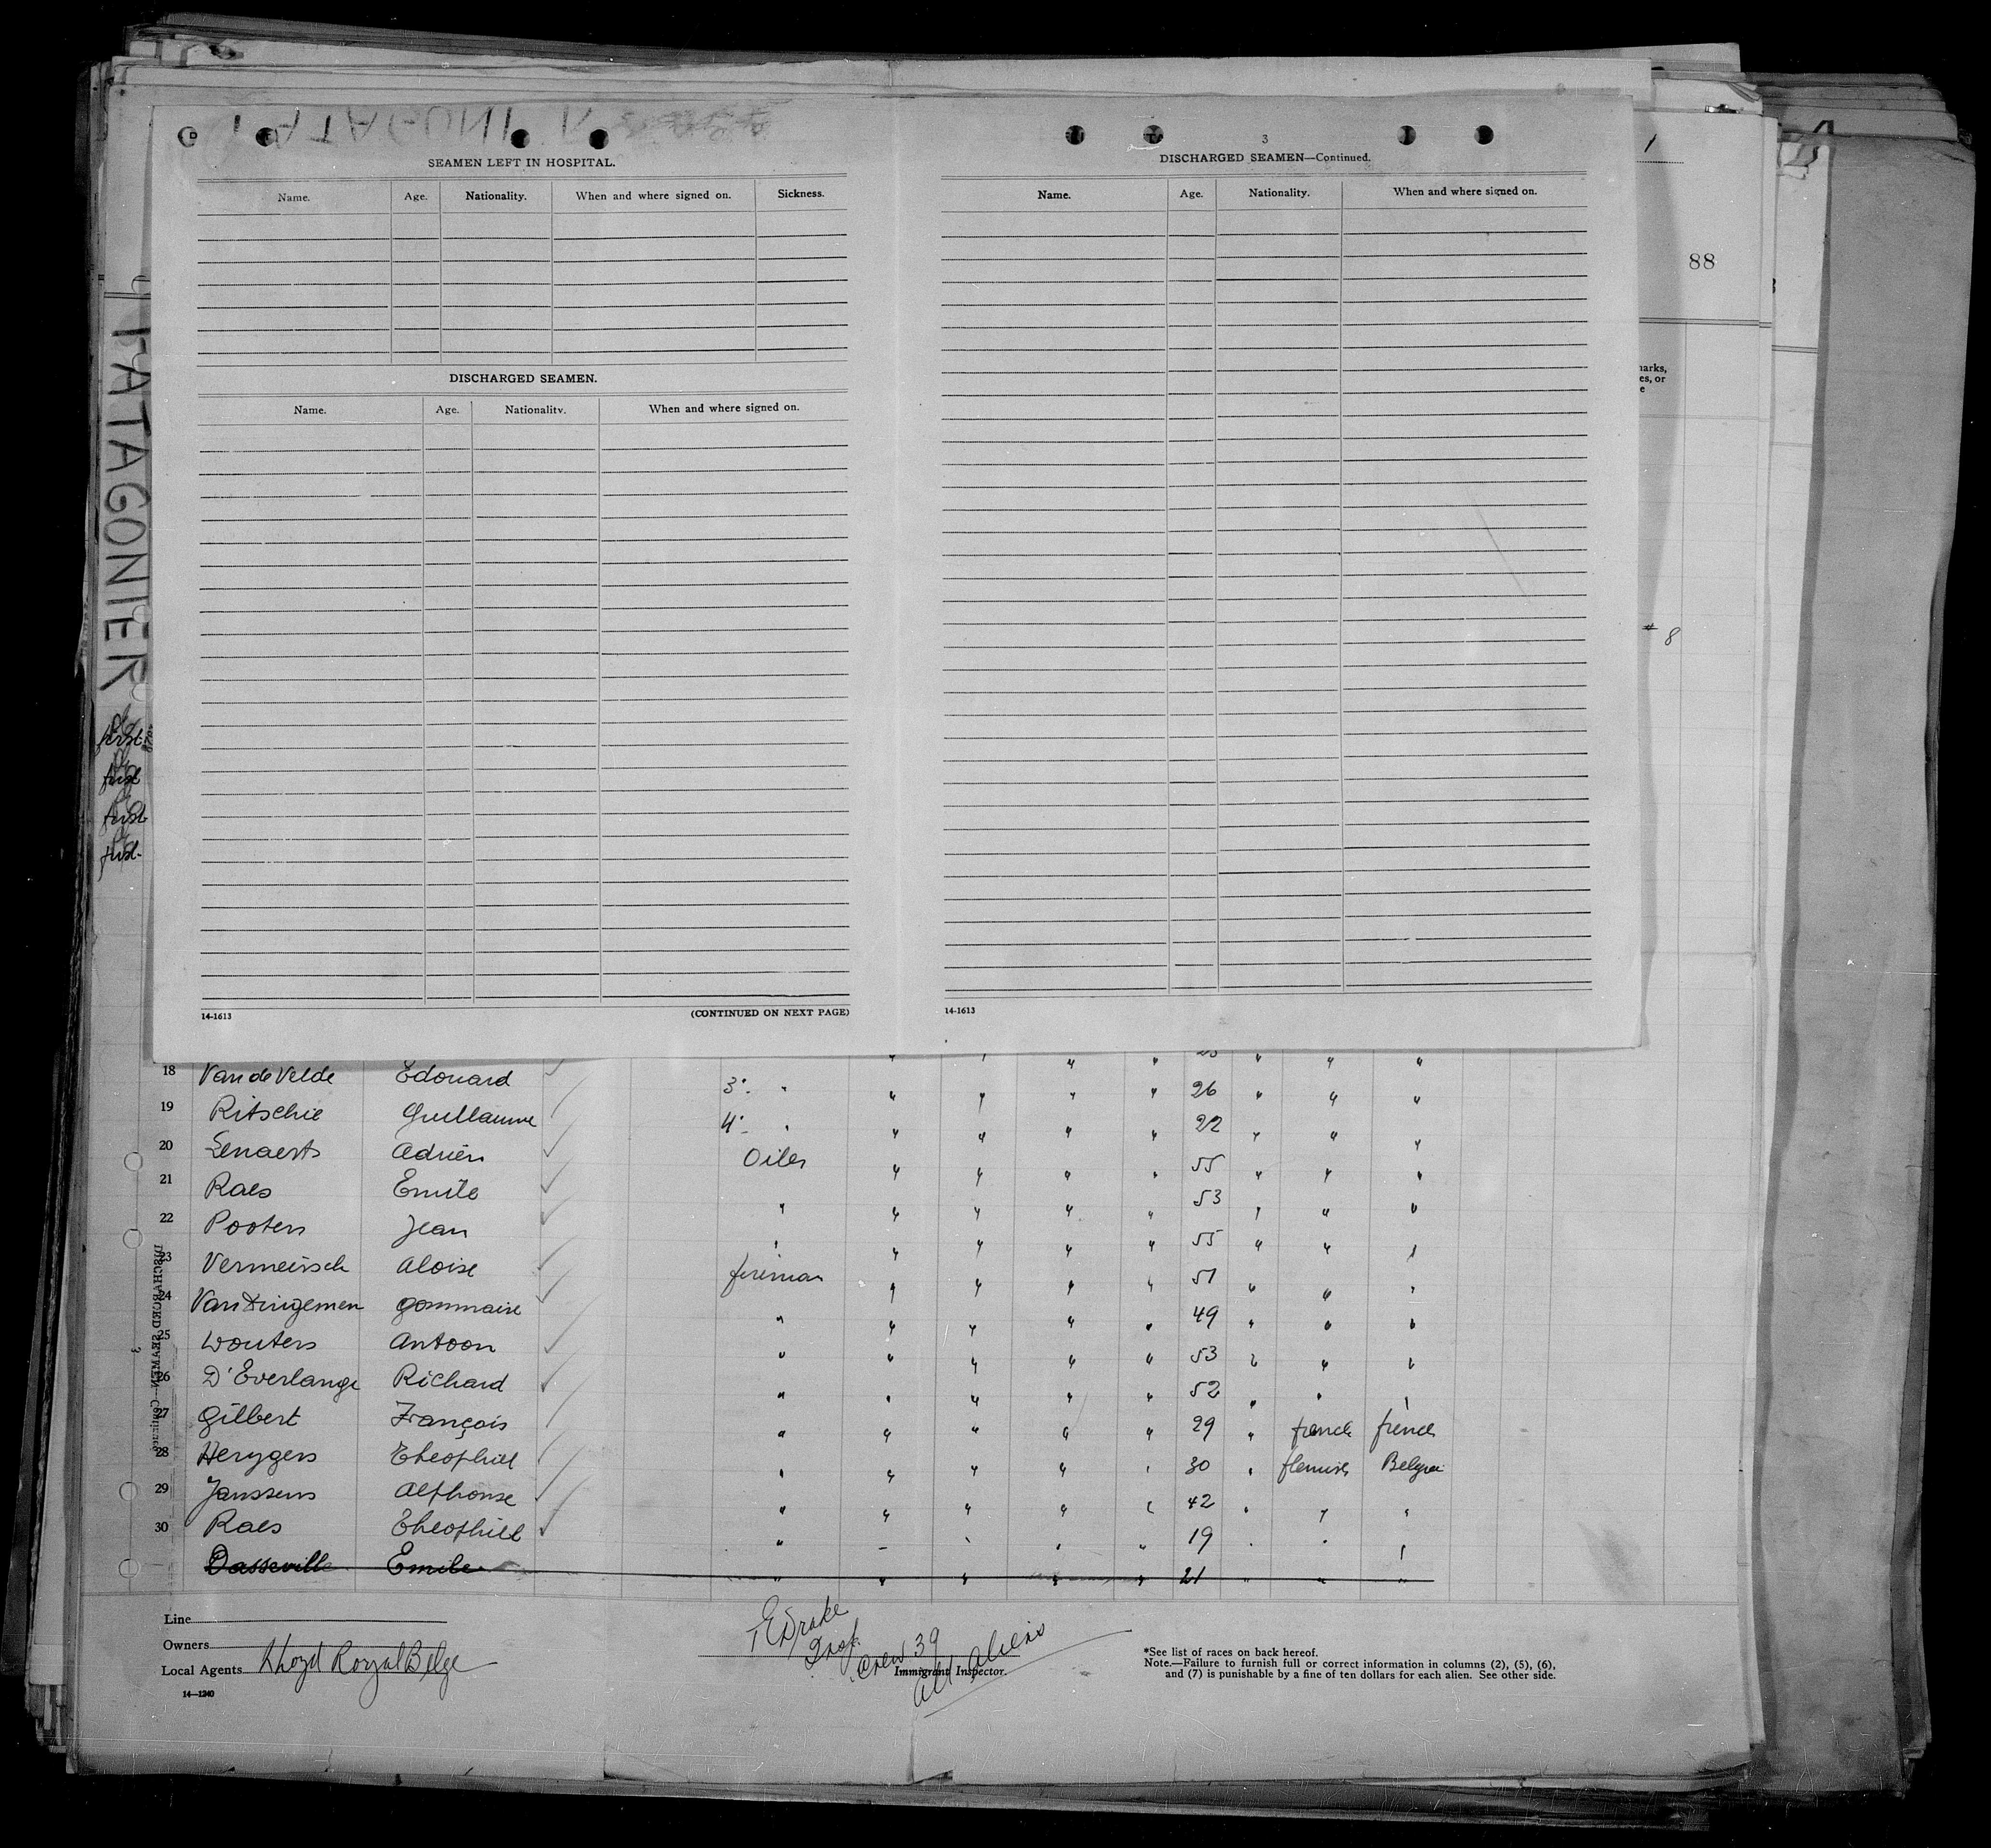 PATAGONIER
3
SEAMEN LEFT IN HOSPITAL.
Name. Age. Nationality. When and where signed on. Sickness.
DISCHARGED SEAMEN.
Name. Age. Nationality. When and where signed on.
14-1613 (CONTINUED ON NEXT PAGE)
DISCHARGED SEAMEN—Continued.
Name. Age. Nationality. When and where signed on.
14-1613
1
88
# 8
PATAGONIER
first
first
first
first
DISCHARGED SEAMEN—Continued
3
18 Van de Velde Edouard 3. " " " " " 26 " " "
19 Ritschie Guillaume 4. " " " " " 22 " " "
20 Lenaerts Adrien Oiler " " " " 55 " " "
21 Raes Emile " " " " " 53 " " "
22 Pooters Jean " " " " " 55 " " "
23 Vermeirsch Aloise fireman " " " " 51 " " "
24 Gommaire " " " " " 49 " " "
25 Wouters Antoon " " " " " 53 " " "
26 D'Everlange Richard " " " " " 52 " " "
27 Gilbert François " " " " " 29 " french french
28 Herygers Theophiel " " " " " 30 " flemish
29 Janssens Alphonse " " " " " 42 " " "
30 Raes Theophiel " " " " " 19 " " "
Dasseville Emile " " " " " 21 " " "
Line
Owners
Local Agents Lloyd Royal Belge
14—1240
Drake
Insp.
Crew 39
All Aliens
Immigrant Inspector.
*See list of races on back hereof.
Note.—Failure to furnish full or correct information in columns (2), (5), (6),
and (7) is punishable by a fine of ten dollars for each alien. See other side.